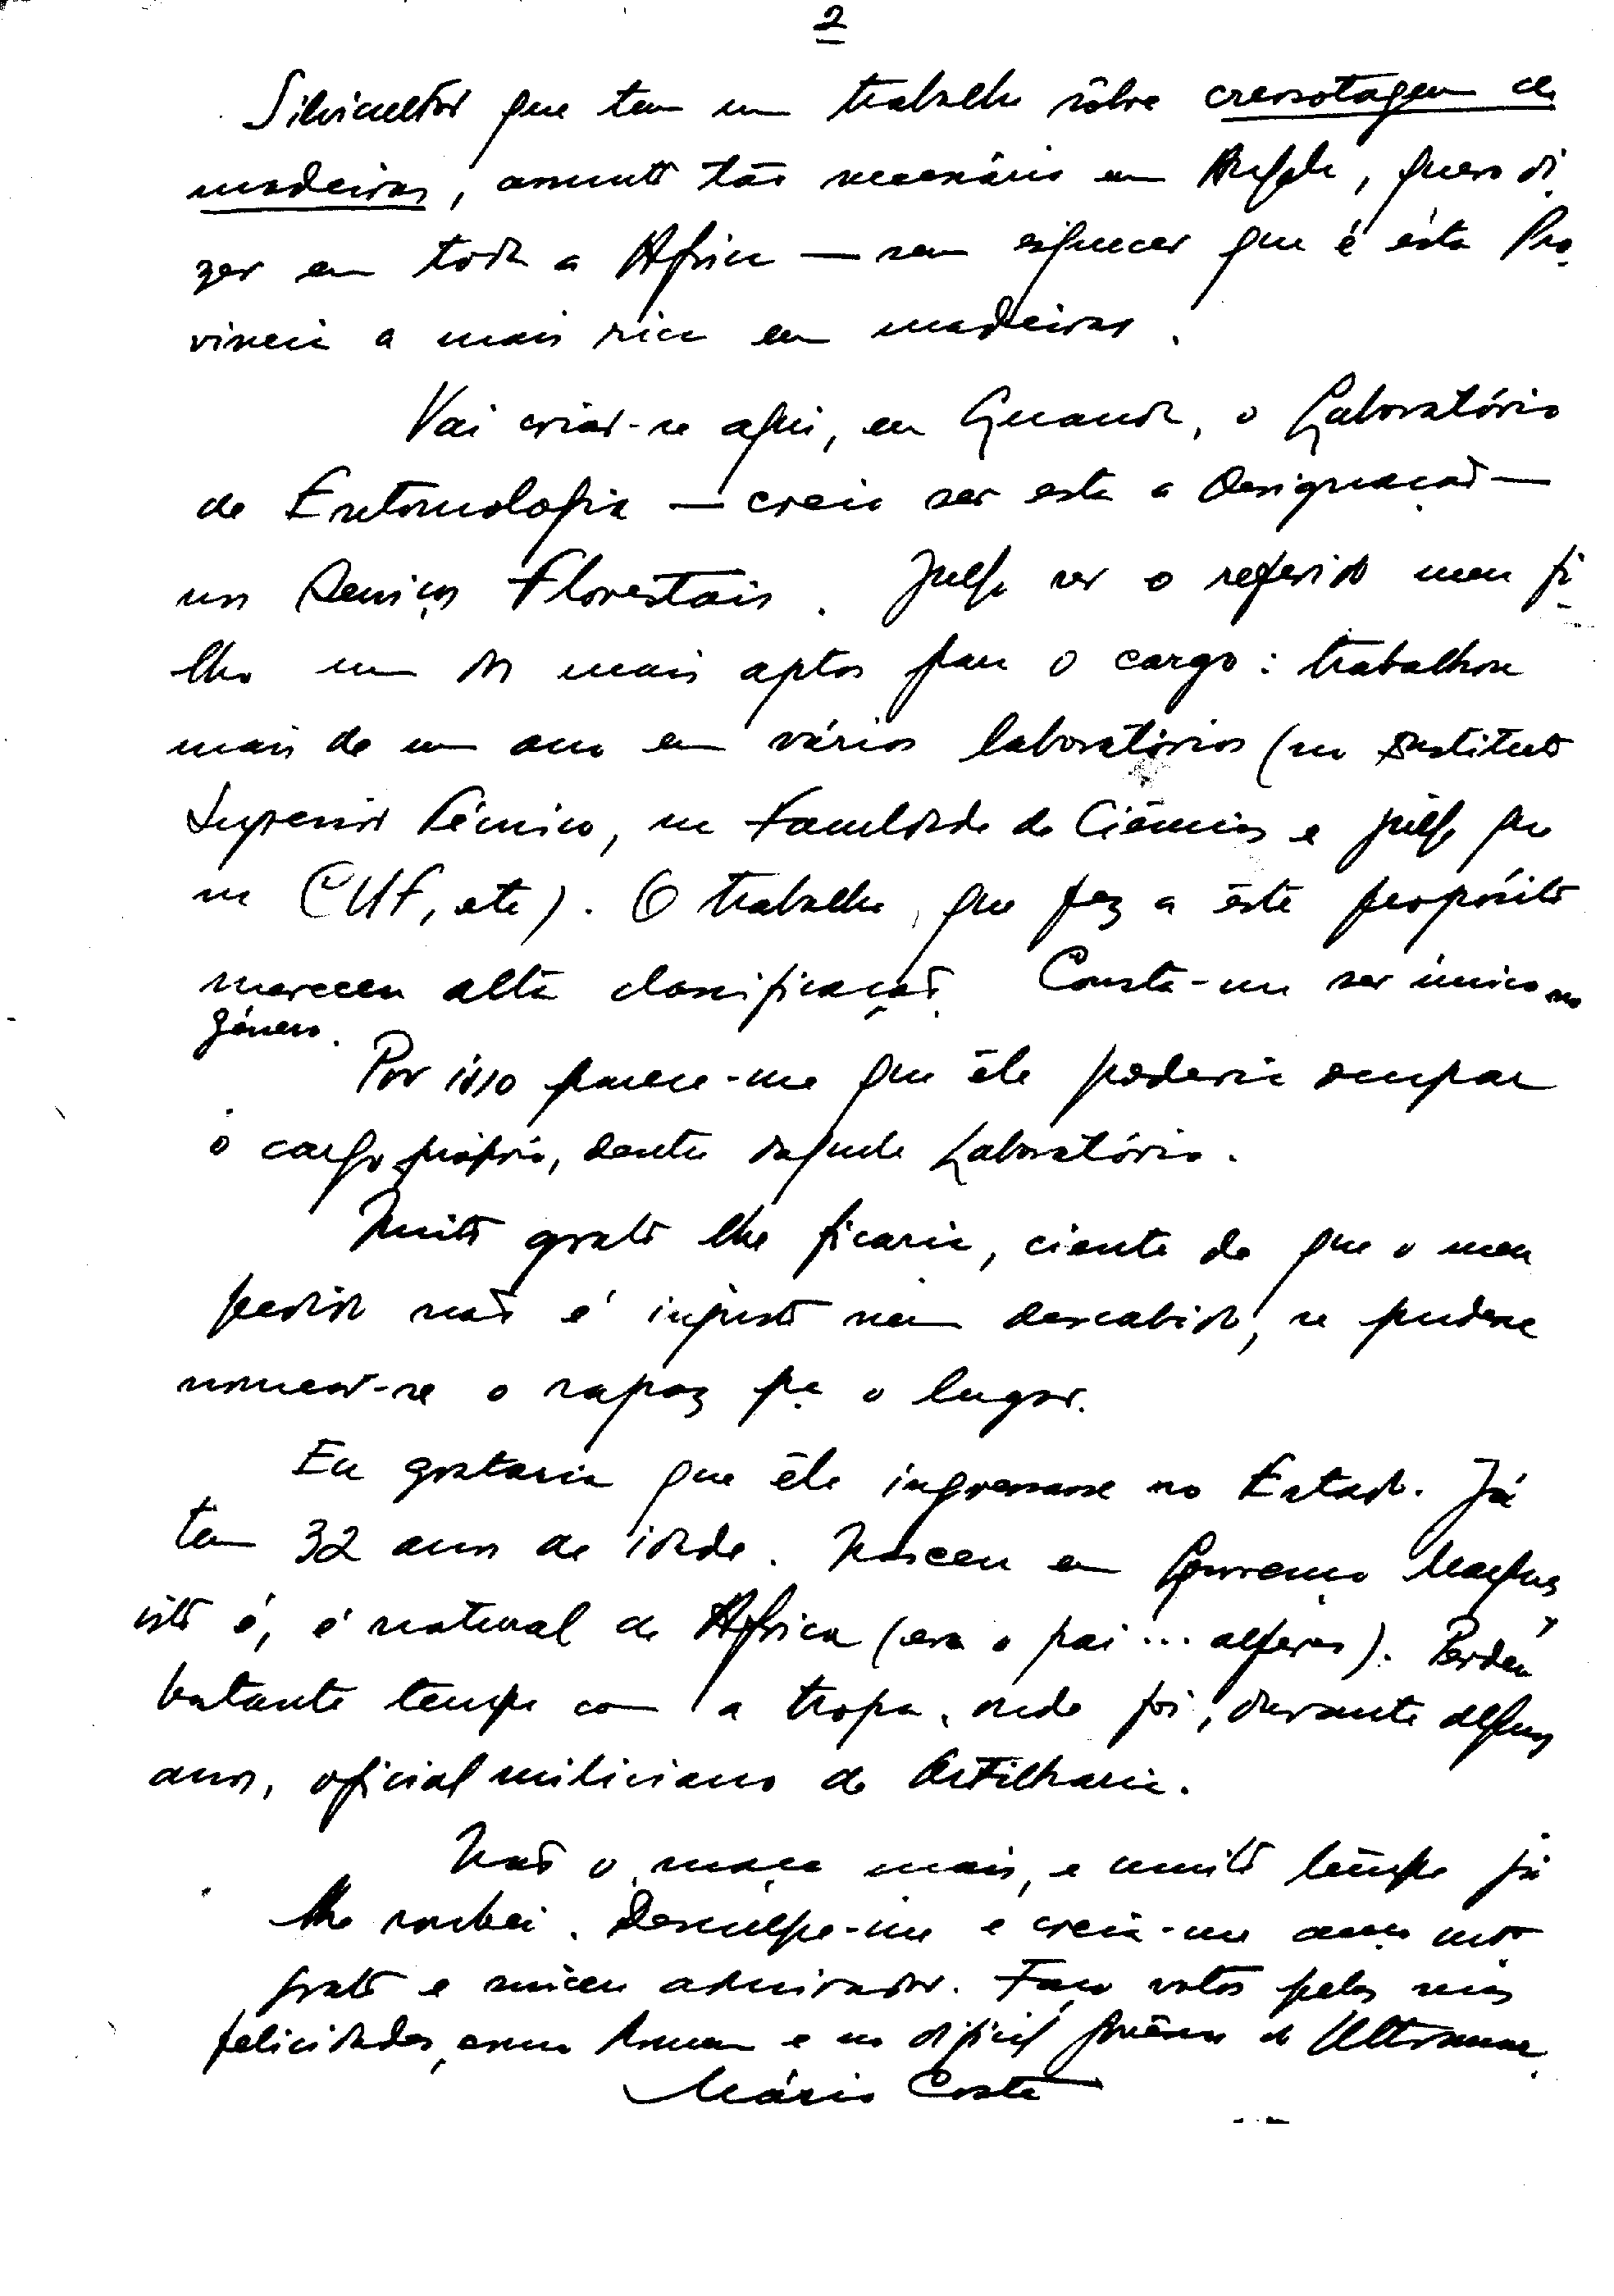 2
Silvicultor que tem um trabalho sôbre creosotagem de
madeiras, assunto tão necessário em Angola, quero di-
zer em toda a África — sem esquecer que é esta Pro-
vincia a mais rica em madeiras.
Vai criar-se aqui, em Luanda, o Laboratório
de Entomologia — creio ser esta a designação —
nos Serviços Florestais. Julgo ser o referido meu fi-
lho um dos mais aptos para o cargo: trabalhou
mais de um ano em vários laboratórios (no Instituto
Superior Técnico, na Faculdade de Ciências e julgo que
na CUF, etc). O trabalho, que fez a êste propósito
mereceu alta classificação. Consta-me ser único no
género.
Por isso parece-me que êle poderia ocupar
o cargo próprio, dentro daquele Laboratório.
Muito grato lhe ficaria, ciente de que o meu
pedido não é injusto nem descabido, se pudesse
nomear-se o rapaz pª o lugar.
Eu gostaria que êle ingressasse no Estado. Já
tem 32 anos de idade. Nasceu em Lourenço Marques,
isto é, é natural de África (era o pai... alferes). Perdeu
bastante tempo com a tropa, onde foi, durante alguns
anos, oficial miliciano de Artilharia.
Não o maço mais, e muito tempo já
lhe roubei. Desculpe-me e creia-me mtº
grato e sincero admirador. Faço votos pelas suas
felicidades, como Homem e no difícil govêrno do Ultramar.
Mário Costa